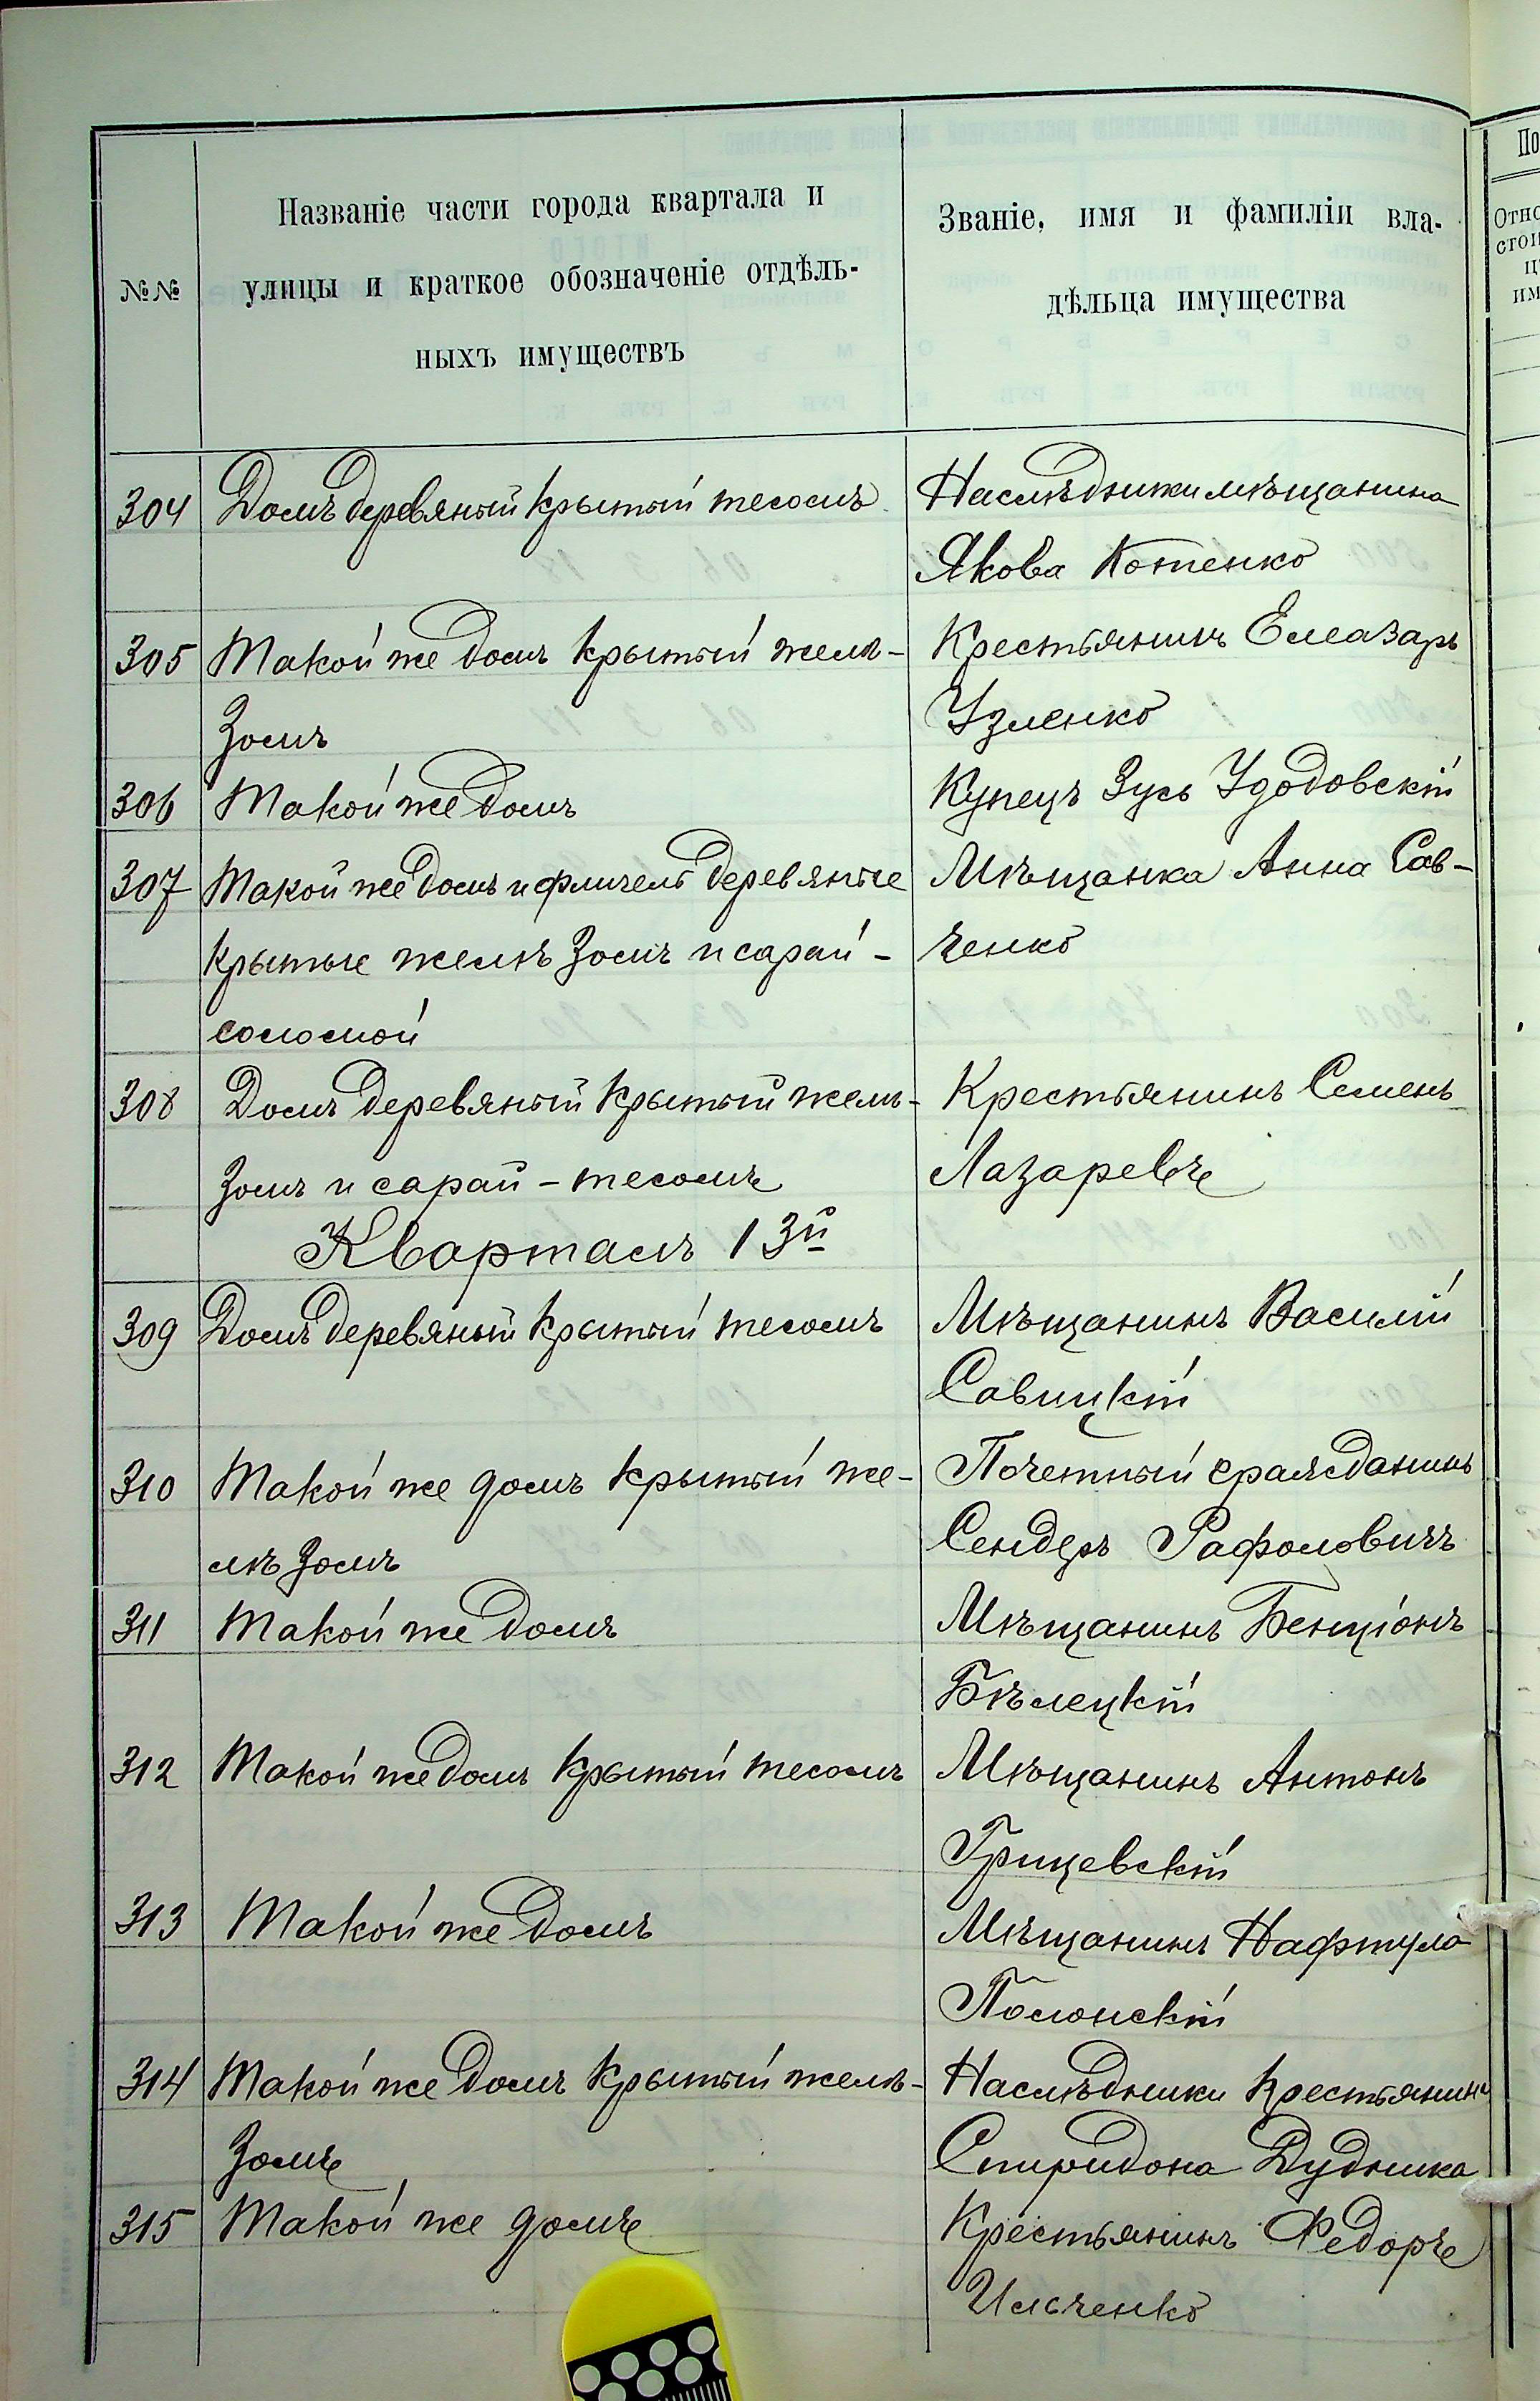 №№
Названіе части города квартала и
улицы и краткое обозначеніе отдѣль-
ныхъ имуществъ
Званіе, имя и фамиліи вла-
дѣльца имущества
304 Домъ деревяный крытый тесомъ Наслѣдники мѣщанина
Якова Котенко
305 Такой же домъ крытый желѣ- Крестьянинъ Елеазаръ
зомъ Узленко
306 Такой же домъ Купецъ Зусь Удодовскій
307 Такой же домъ и флигель деревяные Мѣщанка Анна Сав-
крытые желѣзомъ и сарай - ченко
соломой
308 Домъ деревяный крытый желѣ- Крестьянинъ Семенъ
зомъ и сарай - тесомъ Лазаревъ
Кварталъ 13й
309 Домъ деревяный крытый тесомъ Мѣщанинъ Василій
Савицкій
310 Такой же домъ крытый же- Почетный гражданинъ
лѣзомъ Сендеръ Рафоловичъ
311 Такой же домъ Мѣщанинъ Бенціонъ
Бѣлецкій
312 Такой же домъ крытый тесомъ Мѣщанинъ Антонъ
Грицевскій
313 Такой же домъ Мѣщанинъ Нафтула
Полонскій
314 Такой же домъ крытый желѣ- Наслѣдники крестьянина
зомъ Спиридона Дудника
315 Такой же домъ Крестьянинъ Федоръ
Ильченко
По
Отно
стои
ц
им